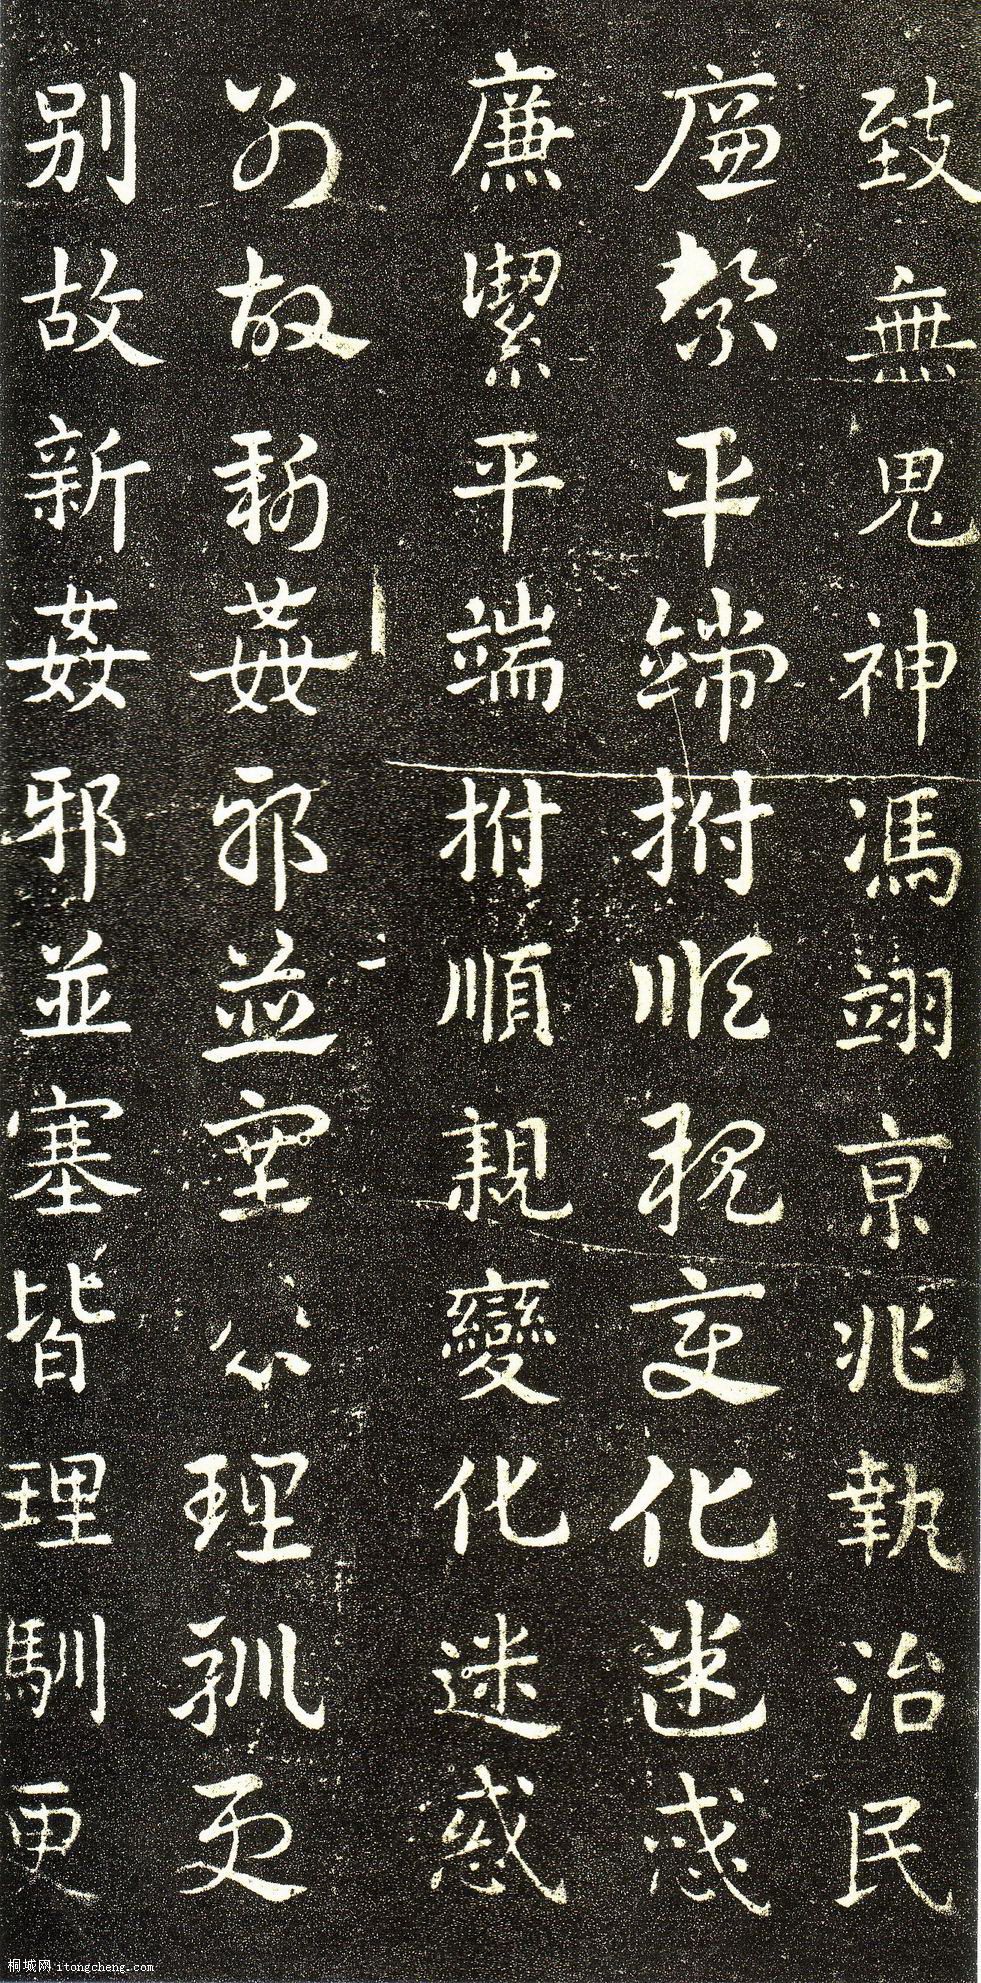 致無鬼神馮翊京兆執治民
廉絜平端拊順親變化迷惑
廉潔平端拊順親變化迷惑
別故新姦邪並塞皆理馴更
別故新姦邪並塞皆理馴更
桐城网 itongcheng.com